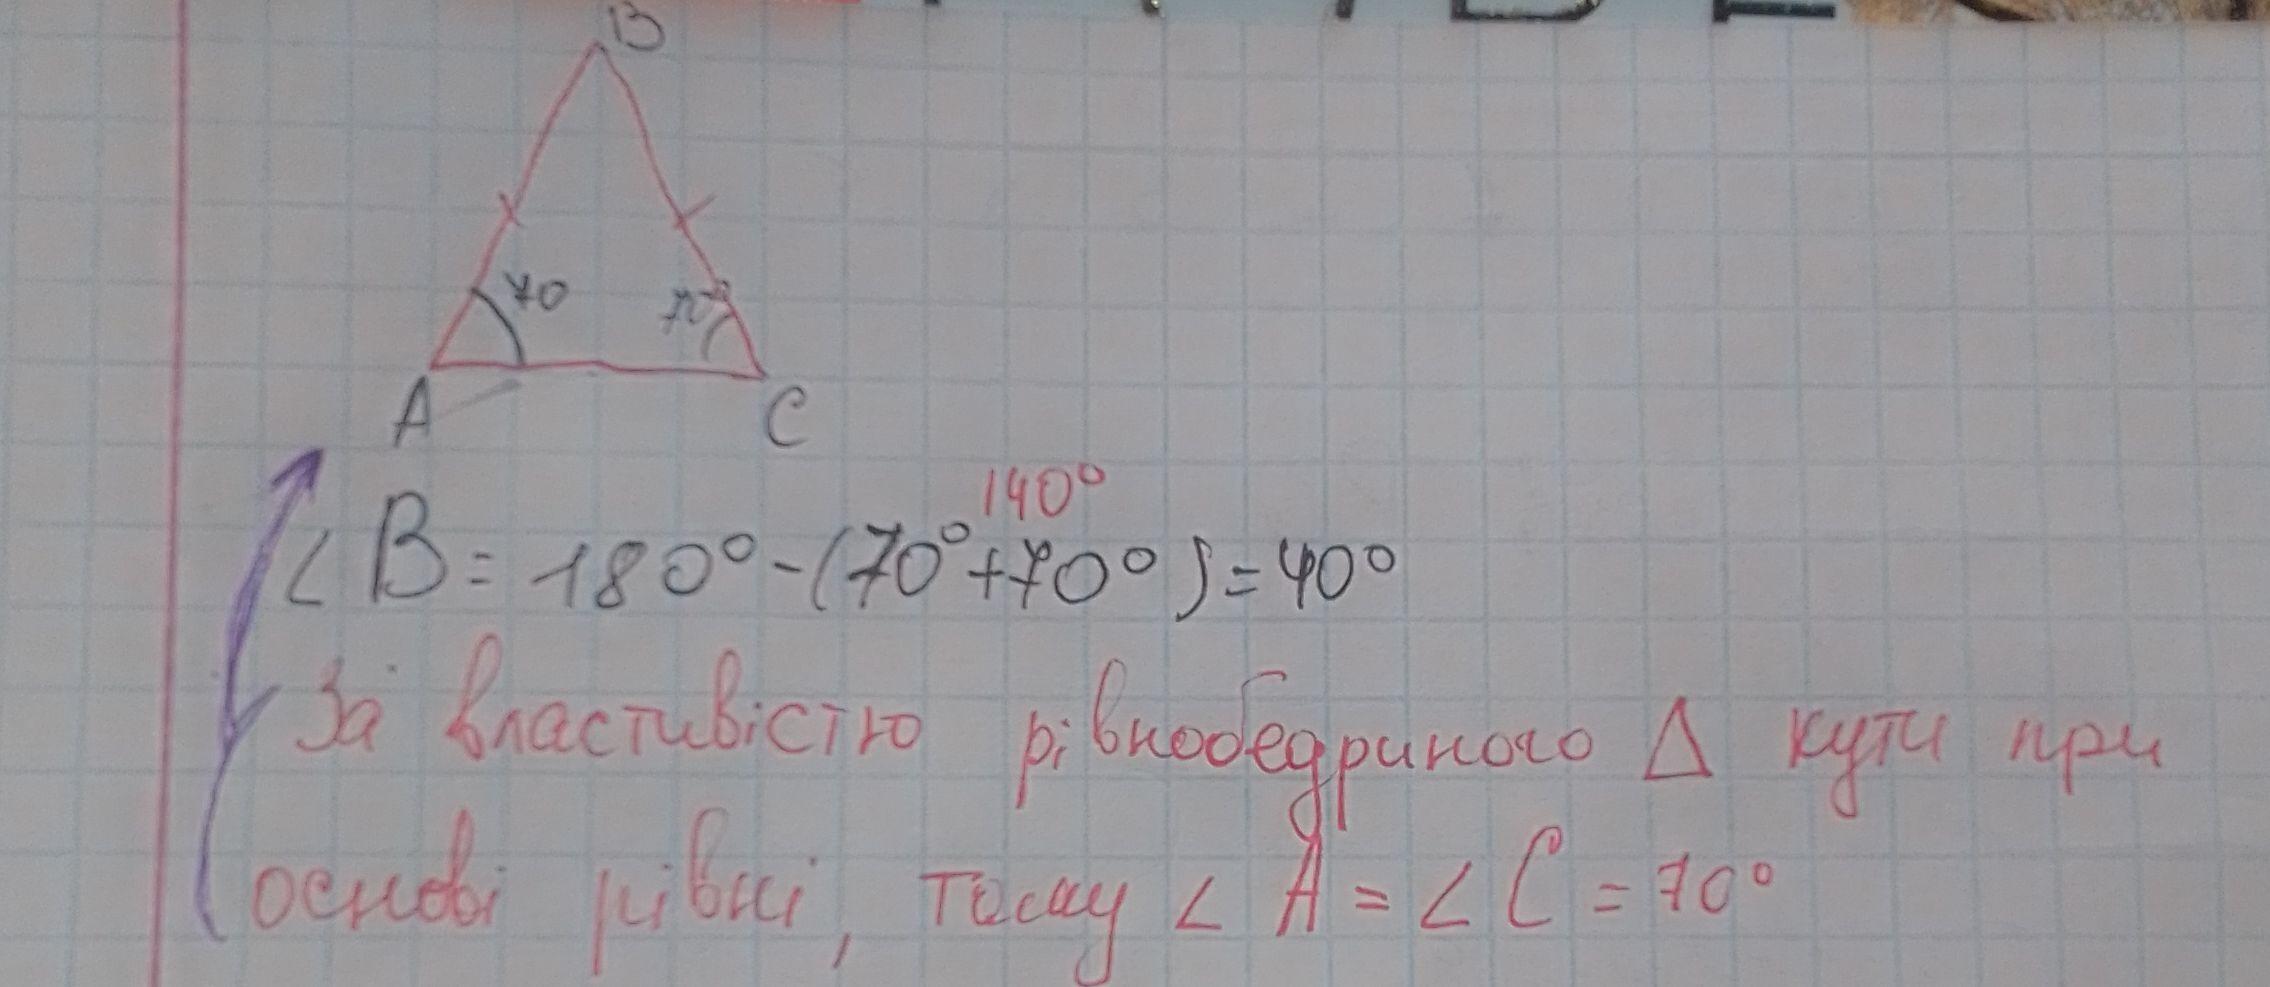 B
70
70°
A
C
140°
∠ B = 180° - (70° + 70°) = 40°
За властивістю рівнобедриного Δ кути при
основі рівні, тому ∠ A = ∠ C = 70°